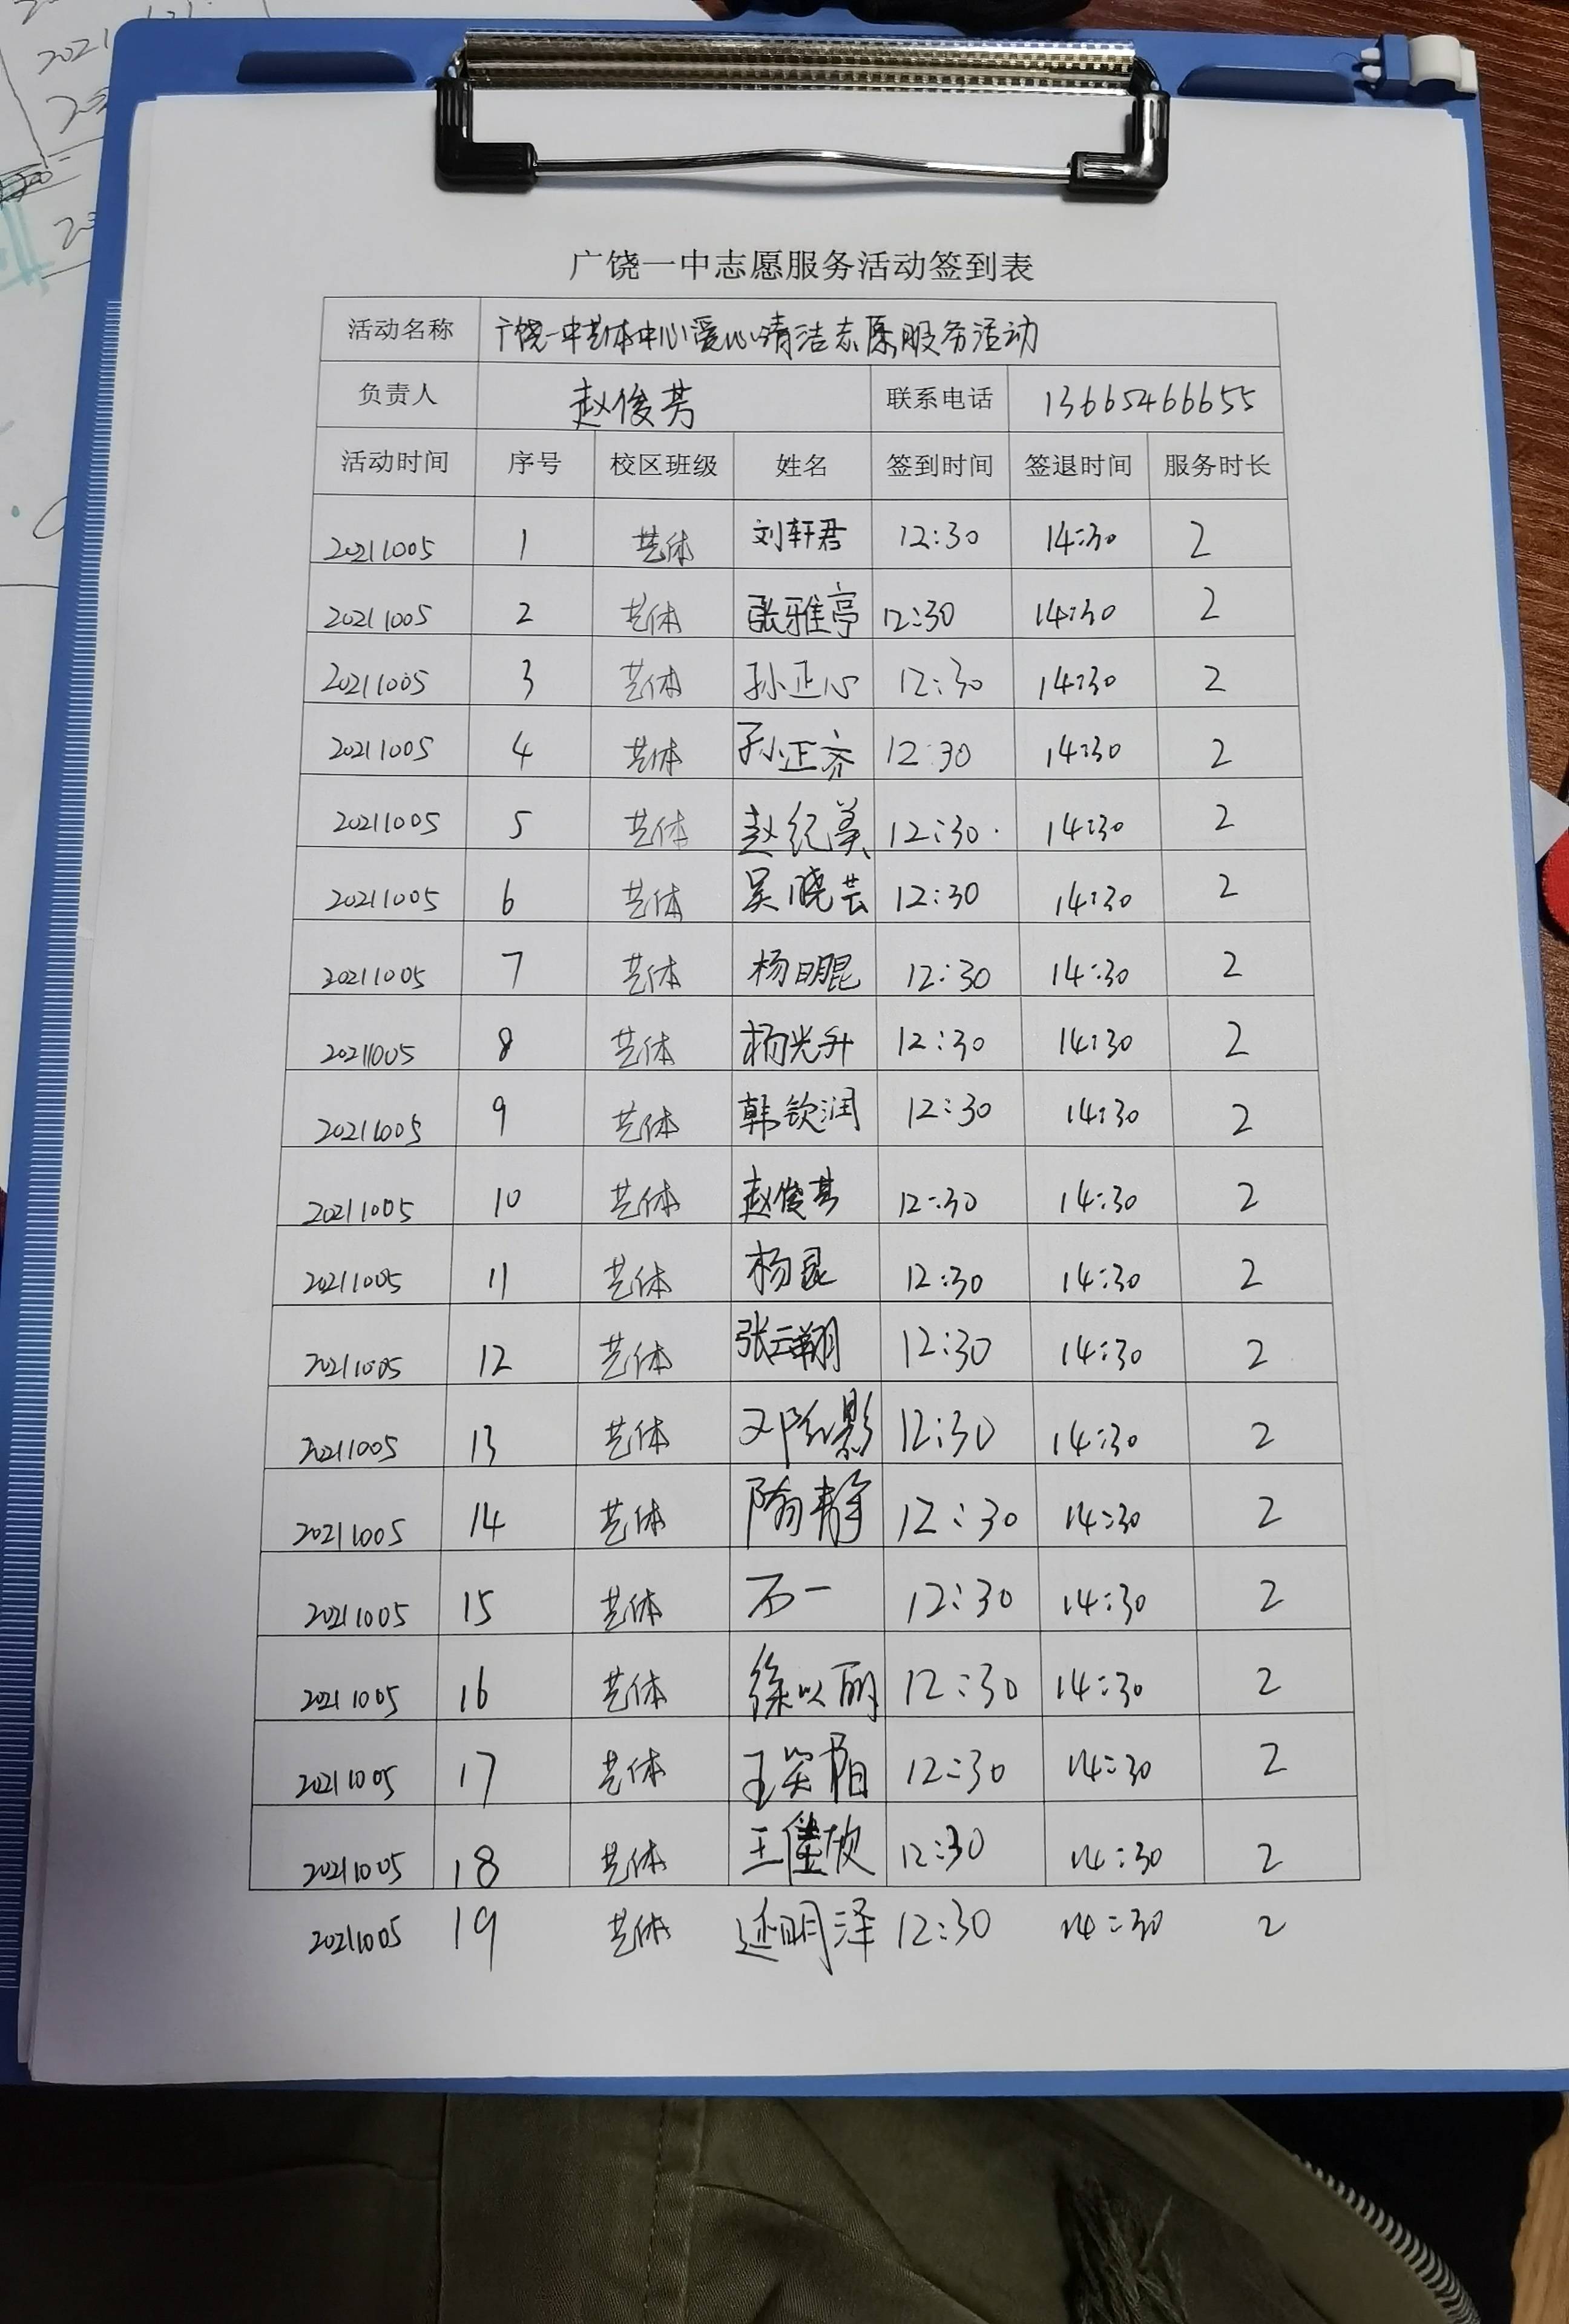 广饶一中志愿服务活动签到表
活动名称 广饶一中艺体中心爱心清洁志愿服务活动
负责人 赵俊芳 联系电话 13665466655
活动时间 序号 校区班级 姓名 签到时间 签退时间 服务时长
20211005 1 艺体 刘轩君 12:30 14:30 2
20211005 2 艺体 张雅亭 12:30 14:30 2
20211005 3 艺体 孙正心 12:30 14:30 2
20211005 4 艺体 孙正齐 12:30 14:30 2
20211005 5 艺体 赵纪美 12:30 14:30 2
20211005 6 艺体 吴晓芸 12:30 14:30 2
20211005 7 艺体 杨明昆 12:30 14:30 2
20211005 8 艺体 杨光升 12:30 14:30 2
20211005 9 艺体 韩钦润 12:30 14:30 2
20211005 10 艺体 赵俊芳 12:30 14:30 2
20211005 11 艺体 杨昆 12:30 14:30 2
20211005 12 艺体 张云翔 12:30 14:30 2
20211005 13 艺体 邓红影 12:30 14:30 2
20211005 14 艺体 隋静 12:30 14:30 2
20211005 15 艺体 石一 12:30 14:30 2
20211005 16 艺体 徐以丽 12:30 14:30 2
20211005 17 艺体 王笑阳 12:30 14:30 2
20211005 18 艺体 12:30 14:30 2
20211005 19 艺体 12:30 14:30 2